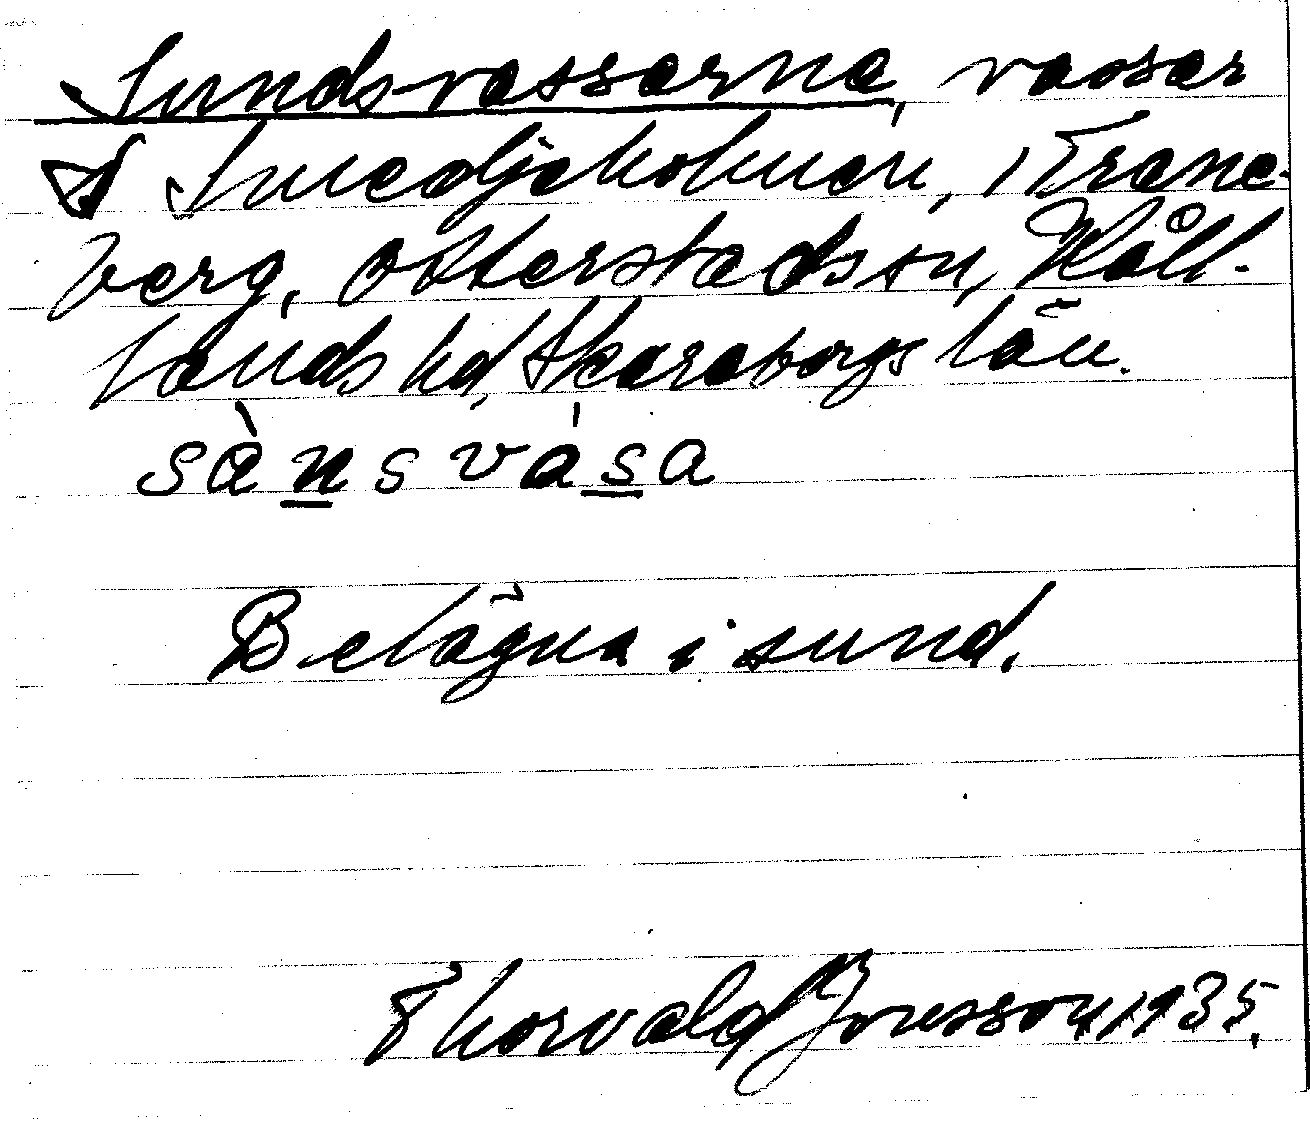 Sundsvassarna, vassar
V Smedjeholmen, 1 Trane-
berg, Otterstads sn, Kåll-
lands hd, Skaraborgs län.
sànsvása
Belägna i sund.
Thorvald Jonsson, 1935.